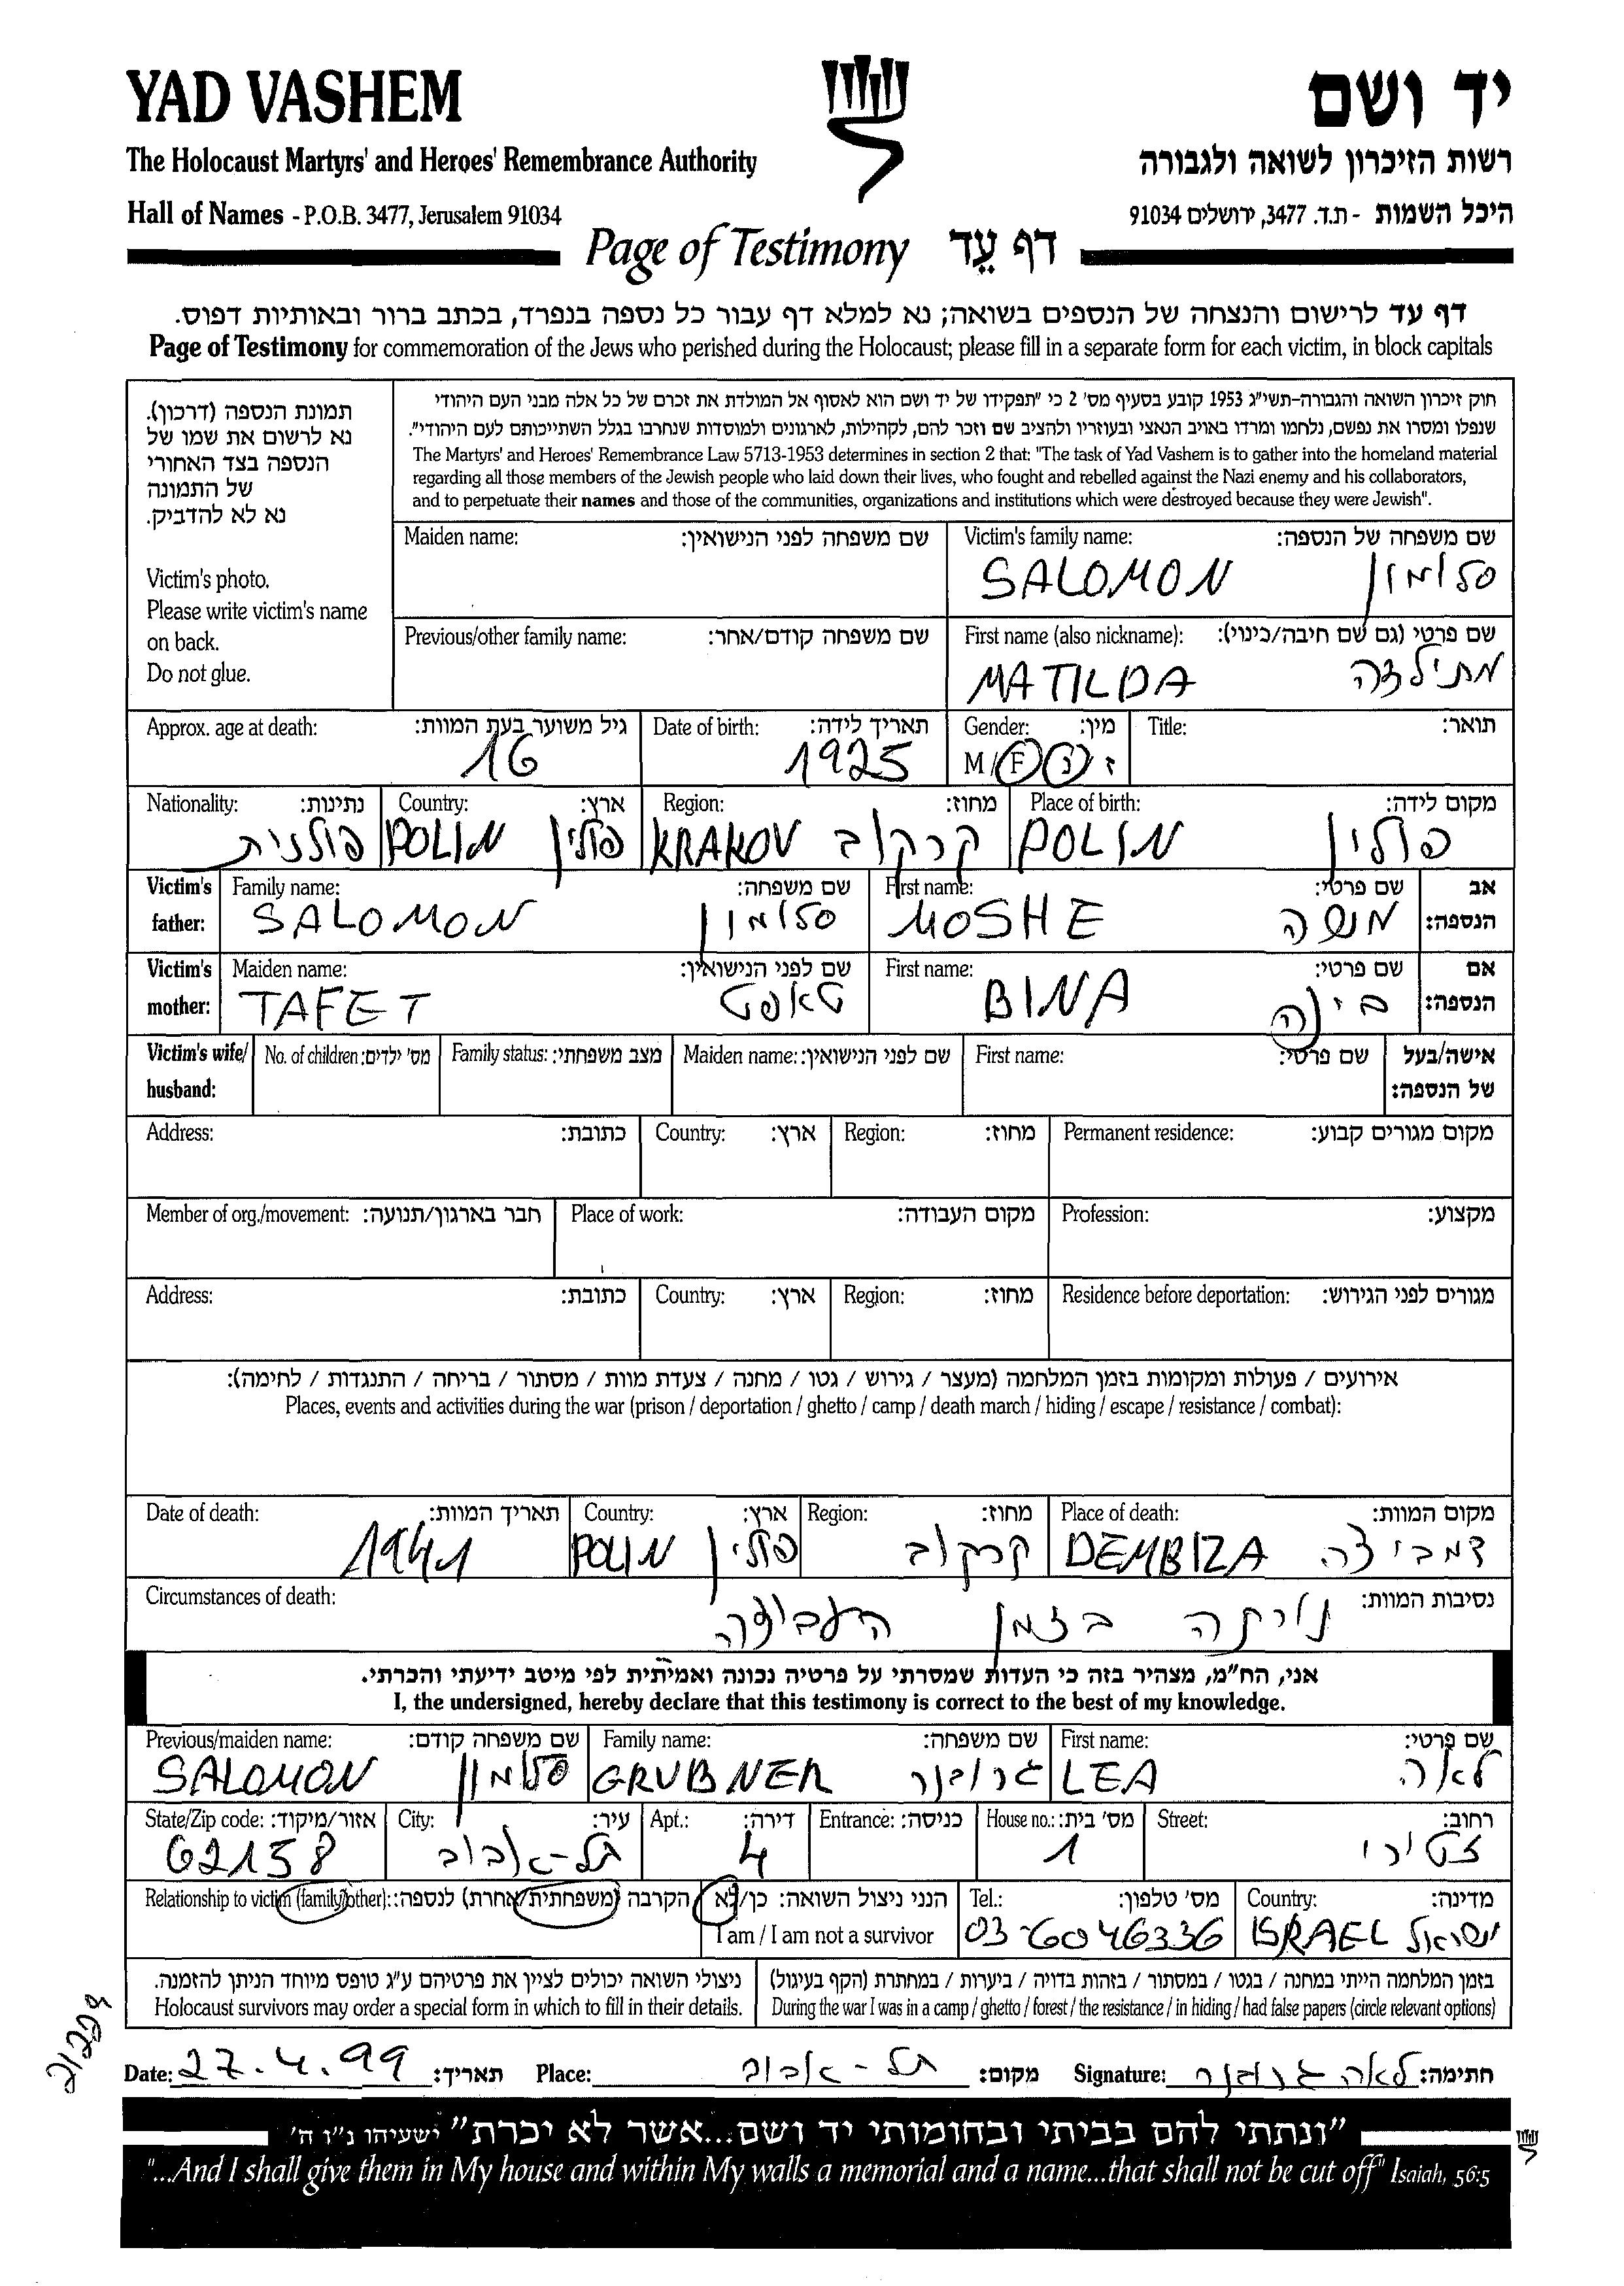 YAD VASHEM
יד ושם
The Holocaust Martyrs' and Heroes' Remembrance Authority
רשות הזיכרון לשואה ולגבורה
Hall of Names - P.O.B. 3477, Jerusalem 91034
היכל השמות - ת.ד. 3477, ירושלים 91034
Page of Testimony דף עֵד
דף עד לרישום והנצחה של הנספים בשואה; נא למלא דף עבור כל נספה בנפרד, בכתב ברור ובאותיות דפוס.
Page of Testimony for commemoration of the Jews who perished during the Holocaust; please fill in a separate form for each victim, in block capitals
תמונת הנספה (דרכון).
נא לרשום את שמו של
הנספה בצד האחורי
של התמונה
נא לא להדביק.
Victim's photo.
Please write victim's name
on back.
Do not glue.
חוק זיכרון השואה והגבורה-תשי"ג 1953 קובע בסעיף מס' 2 כי "תפקידו של יד ושם הוא לאסוף אל המולדת את זכרם של כל אלה מבני העם היהודי
שנפלו ומסרו את נפשם, נלחמו ומרדו באויב הנאצי ובעוזריו ולהציב שם וזכר להם, לקהילות, לארגונים ולמוסדות שנחרבו בגלל השתייכותם לעם היהודי".
The Martyrs' and Heroes' Remembrance Law 5713-1953 determines in section 2 that: "The task of Yad Vashem is to gather into the homeland material
regarding all those members of the Jewish people who laid down their lives, who fought and rebelled against the Nazi enemy and his collaborators,
and to perpetuate their names and those of the communities, organizations and institutions which were destroyed because they were Jewish".
Maiden name: שם משפחה לפני הנישואין: Victim's family name: שם משפחה של הנספה:
SALOMON סלומון
Previous/other family name: שם משפחה קודם/אחר: First name (also nickname): שם פרטי (גם שם חיבה/כינוי):
MATILDA מתילדה
Approx. age at death: גיל משוער בעת המוות: Date of birth: תאריך לידה: Gender: מין: Title: תואר:
16 1925 M/F ז/נ
Nationality: נתינות: Country: ארץ: Region: מחוז: Place of birth: מקום לידה:
פולנית POLIN פולין KRAKOV קרקוב POLIN פולין
Victim's father: Family name: שם משפחה: First name: שם פרטי: אב הנספה:
SALOMON סלומון MOSHE משה
Victim's mother: Maiden name: שם לפני הנישואין: First name: שם פרטי: אם הנספה:
TAFET טאפט BINA בינה
Victim's wife/ husband: No. of children: מס' ילדים: Family status: מצב משפחתי: Maiden name: שם לפני הנישואין: First name: שם פרטי: אישה/בעל של הנספה:
Address: כתובת: Country: ארץ: Region: מחוז: Permanent residence: מקום מגורים קבוע:
Member of org./movement: חבר בארגון/תנועה: Place of work: מקום העבודה: Profession: מקצוע:
Address: כתובת: Country: ארץ: Region: מחוז: Residence before deportation: מגורים לפני הגירוש:
אירועים / פעולות ומקומות בזמן המלחמה (מעצר / גירוש / גטו / מחנה / צעדת מוות / מסתור / בריחה / התנגדות / לחימה):
Places, events and activities during the war (prison / deportation / ghetto / camp / death march / hiding / escape / resistance / combat):
Date of death: תאריך המוות: Country: ארץ: Region: מחוז: Place of death: מקום המוות:
1941 POLIN פולין קרקוב DEMBIZA דמביצה
Circumstances of death: נסיבות המוות:
נורתה בזמן העבודה
אני, הח"מ, מצהיר בזה כי העדות שמסרתי על פרטיה נכונה ואמיתית לפי מיטב ידיעתי והכרתי.
I, the undersigned, hereby declare that this testimony is correct to the best of my knowledge.
Previous/maiden name: שם משפחה קודם: Family name: שם משפחה: First name: שם פרטי:
SALOMON סלומון GRUBNER גרובנר LEA לאה
State/Zip code: אזור/מיקוד: City: עיר: Apt.: דירה: Entrance: כניסה: House no.: מס' בית: Street: רחוב:
62158 תל-אביב 4 1
Relationship to victim (family/other): הקרבה (משפחתית/אחרת) לנספה: הנני ניצול השואה: כן/לא Tel.: מס' טלפון: Country: מדינה:
I am / I am not a survivor 03-6046336 ISRAEL ישראל
ניצולי השואה יכולים לציין את פרטיהם ע"ג טופס מיוחד הניתן להזמנה. בזמן המלחמה הייתי במחנה / בגטו / במסתור / בזהות בדויה / ביערות / במחתרת (הקף בעיגול)
Holocaust survivors may order a special form in which to fill in their details. During the war I was in a camp / ghetto / forest / the resistance / in hiding / had false papers (circle relevant options)
Date: 27.4.99 תאריך: Place: תל-אביב מקום: Signature: לאה גרובנר חתימה:
"ונתתי להם בביתי ובחומותי יד ושם...אשר לא יכרת" ישעיהו נ"ו ה'
"...And I shall give them in My house and within My walls a memorial and a name...that shall not be cut off" Isaiah, 56:5